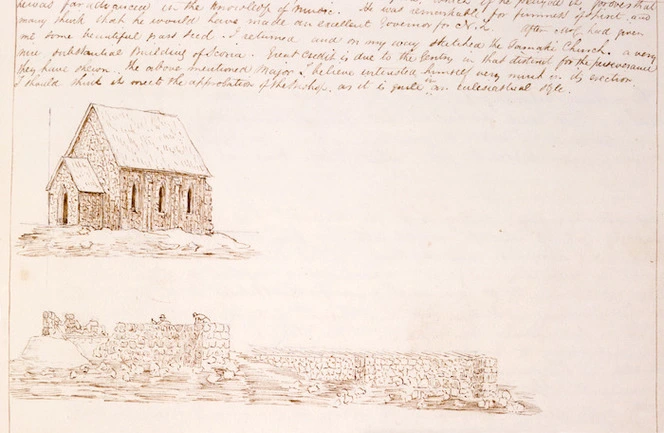 he was far advanced in the knowledge of music. He was remarkable for firmness of spirit and
many think that he would have made an excellent Governor for N.Z. After Mof had given
me some beautiful grass seed. I returned and on my way sketched the Tamaki Church. a very
nice substantial Building of Scoria. Great credit is due to the Gentry in that district for the perseverance
they have shewn. The above mentioned Major I believe interested himself very much in its erection
I should think it meets the approbation of the Bishop, as it is quite an eclesiastical style.